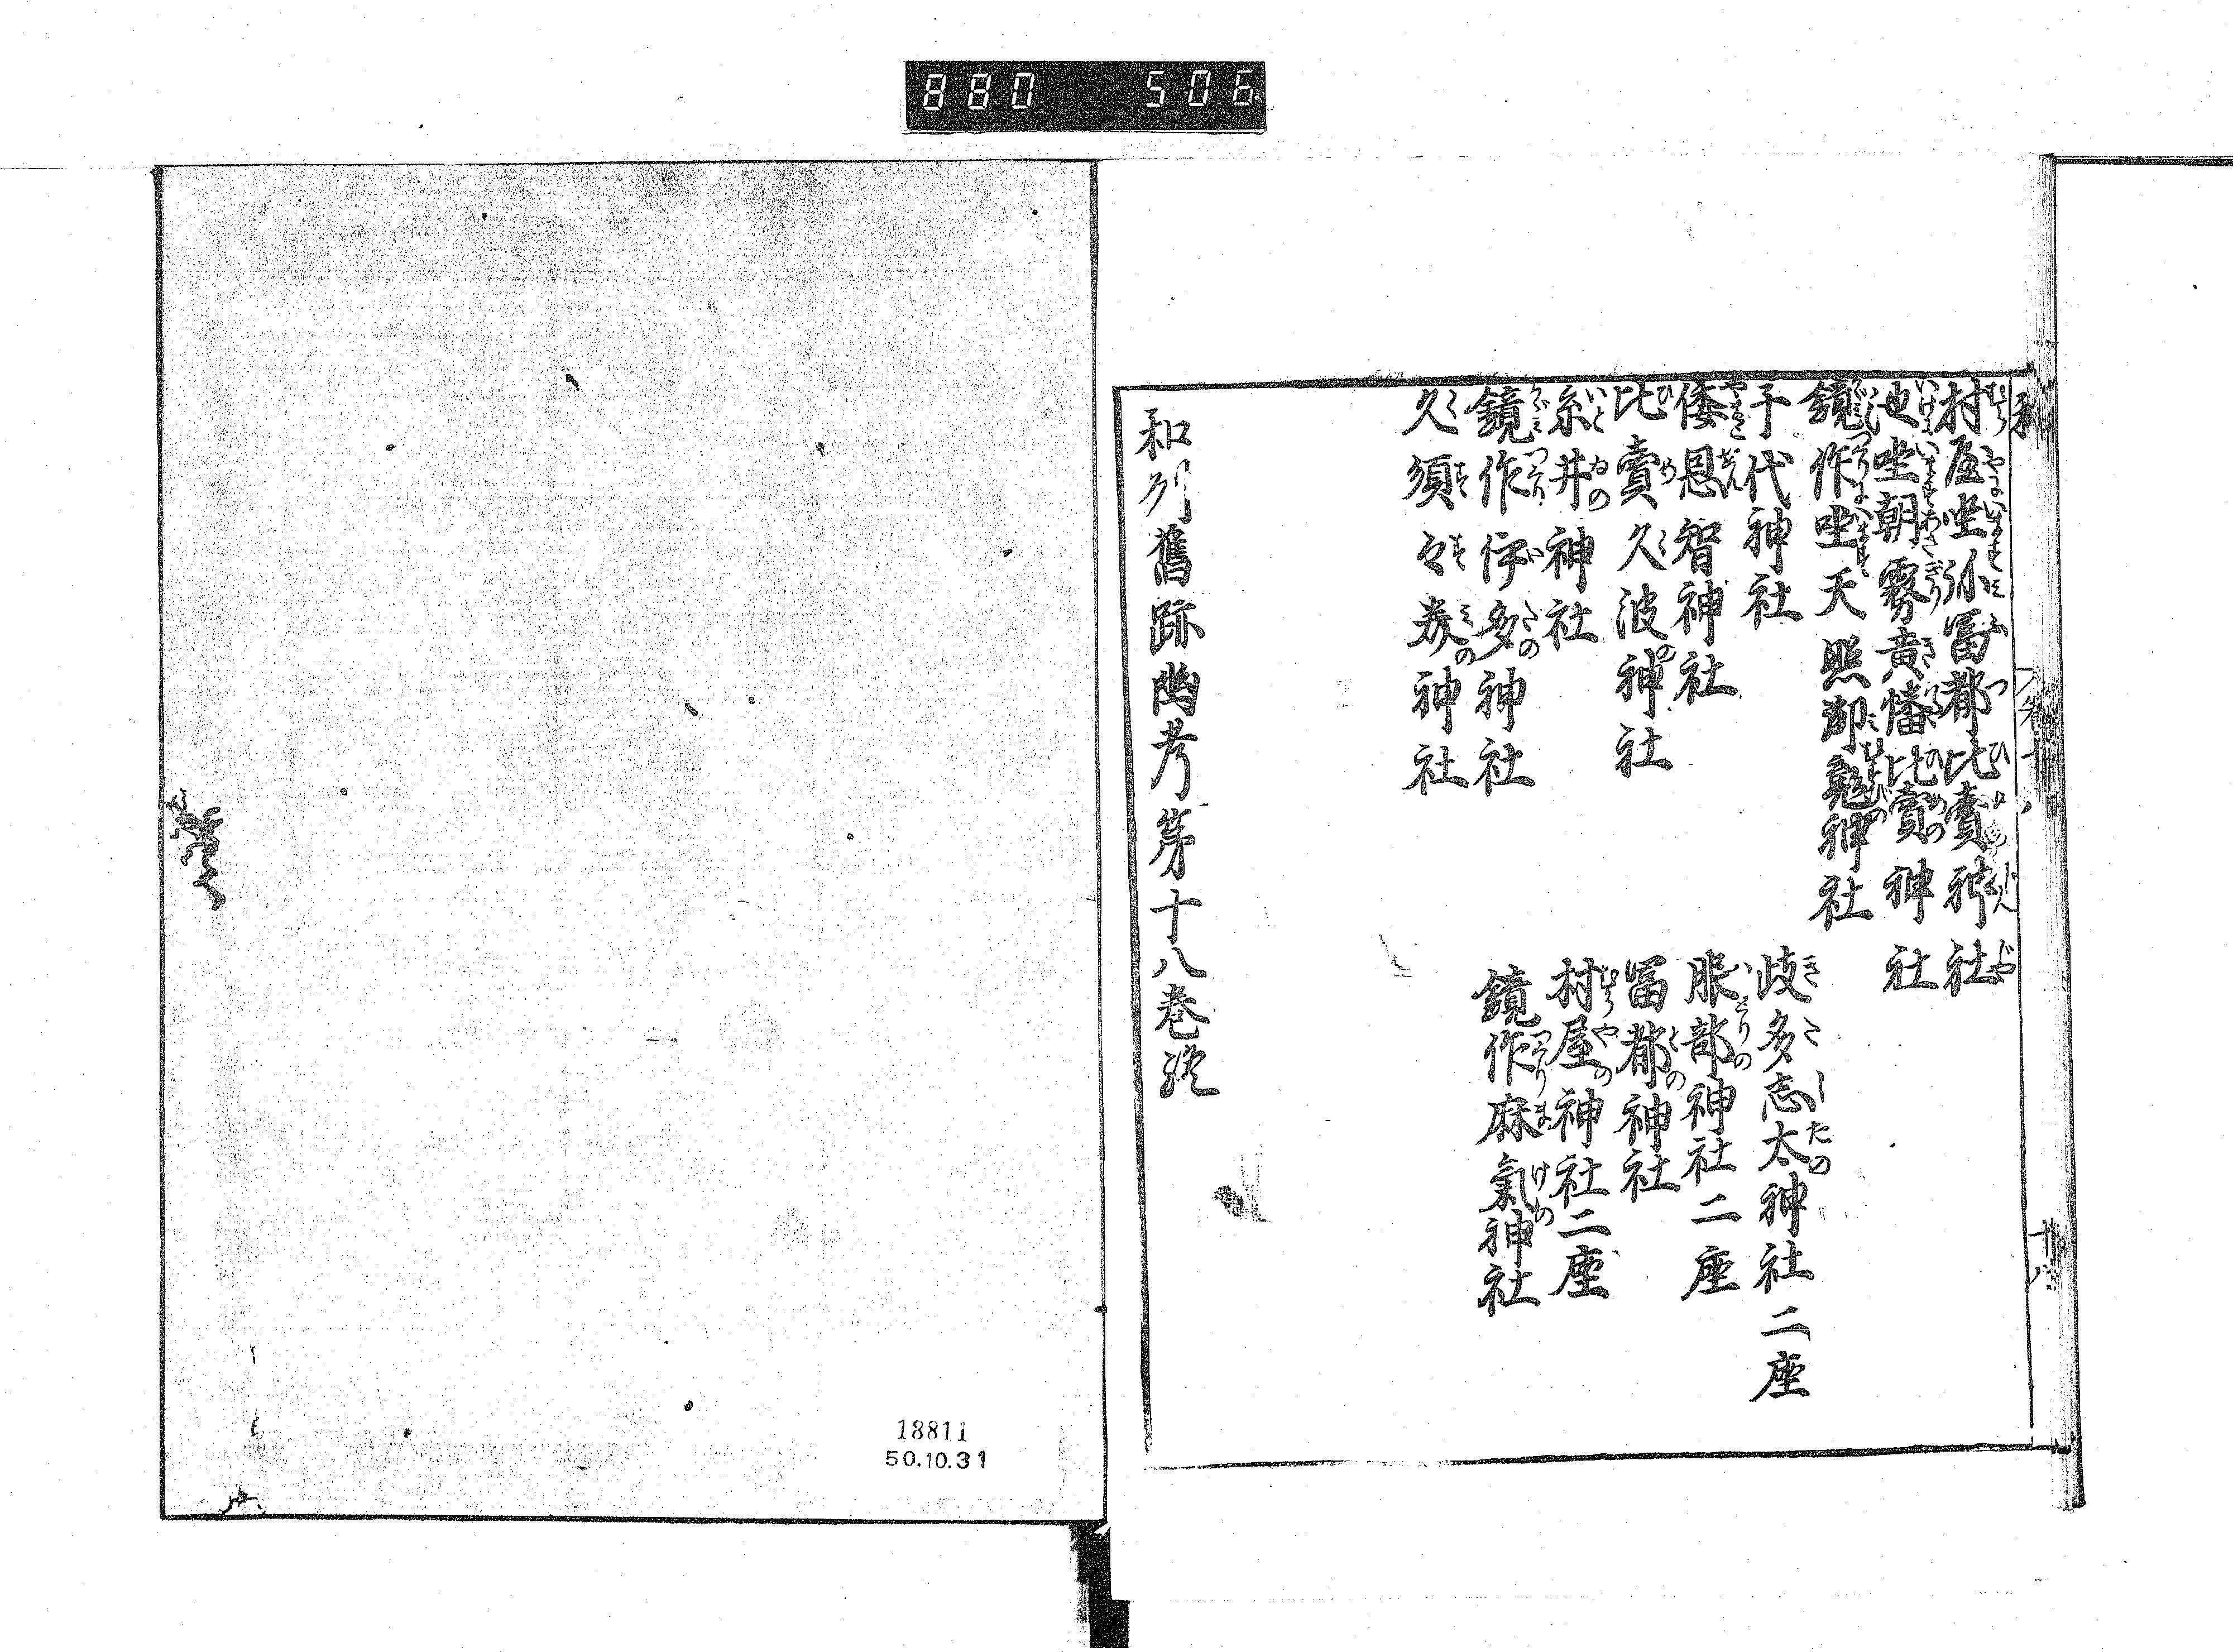 880 506
村屋坐弥冨都比賣神社
池坐朝霧黄幡比賣神社
鏡作坐天照御䰠神社
千代神社
歧多志太神社二座
倭恩智神社
服部神社二座
比賣久波神社
冨都神社
糸井神社
村屋神社二座
鏡作伊多神社
鏡作麻氣神社
久須々美神社
和刕舊跡幽考第十八巻終
十八
18811
50.10.31